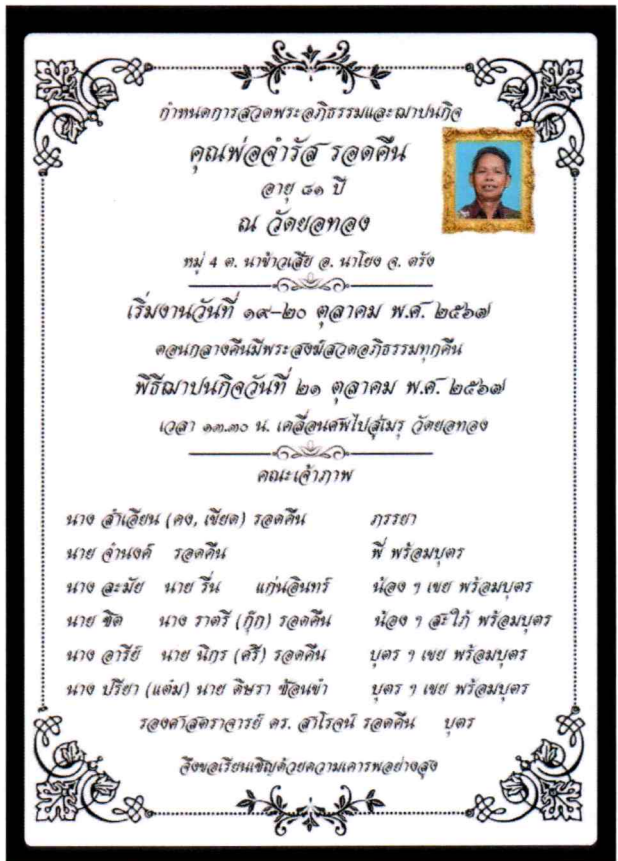 กำหนดการสวดพระอภิธรรมและฌาปนกิจ
คุณพ่อจำรัส รอดคืน
อายุ ๘๑ ปี
ณ วัดยอทอง
หมู่ 4 ต. นาข้าวเสีย อ. นาโยง จ. ตรัง
เริ่มงานวันที่ ๑๙-๒๐ ตุลาคม พ.ศ. ๒๕๖๗
ตอนกลางคืนมีพระสงฆ์สวดอภิธรรมทุกคืน
พิธีฌาปนกิจวันที่ ๒๑ ตุลาคม พ.ศ. ๒๕๖๗
เวลา ๑๓.๓๐ น. เคลื่อนศพไปสู่เมรุ วัดยอทอง
คณะเจ้าภาพ
นาง ลำเอียน (คง, เขียด) รอดคืน ภรรยา
นาย จำนงค์ รอดคืน พี่ พร้อมบุตร
นาง ละมัย นาย รื่น แก่นอินทร์ น้อง ๆ เขย พร้อมบุตร
นาย ชิต นาง ราตรี (กุ๊ก) รอดคืน น้อง ๆ สะใภ้ พร้อมบุตร
นาง อารีย์ นาย นิกร (ศรี) รอดคืน บุตร ๆ เขย พร้อมบุตร
นาง ปรียา (แต๋ม) นาย ดิษรา ซ้อนขำ บุตร ๆ เขย พร้อมบุตร
รองศาสตราจารย์ ดร. สาโรจน์ รอดคืน บุตร
จึงขอเรียนเชิญด้วยความเคารพอย่างสูง